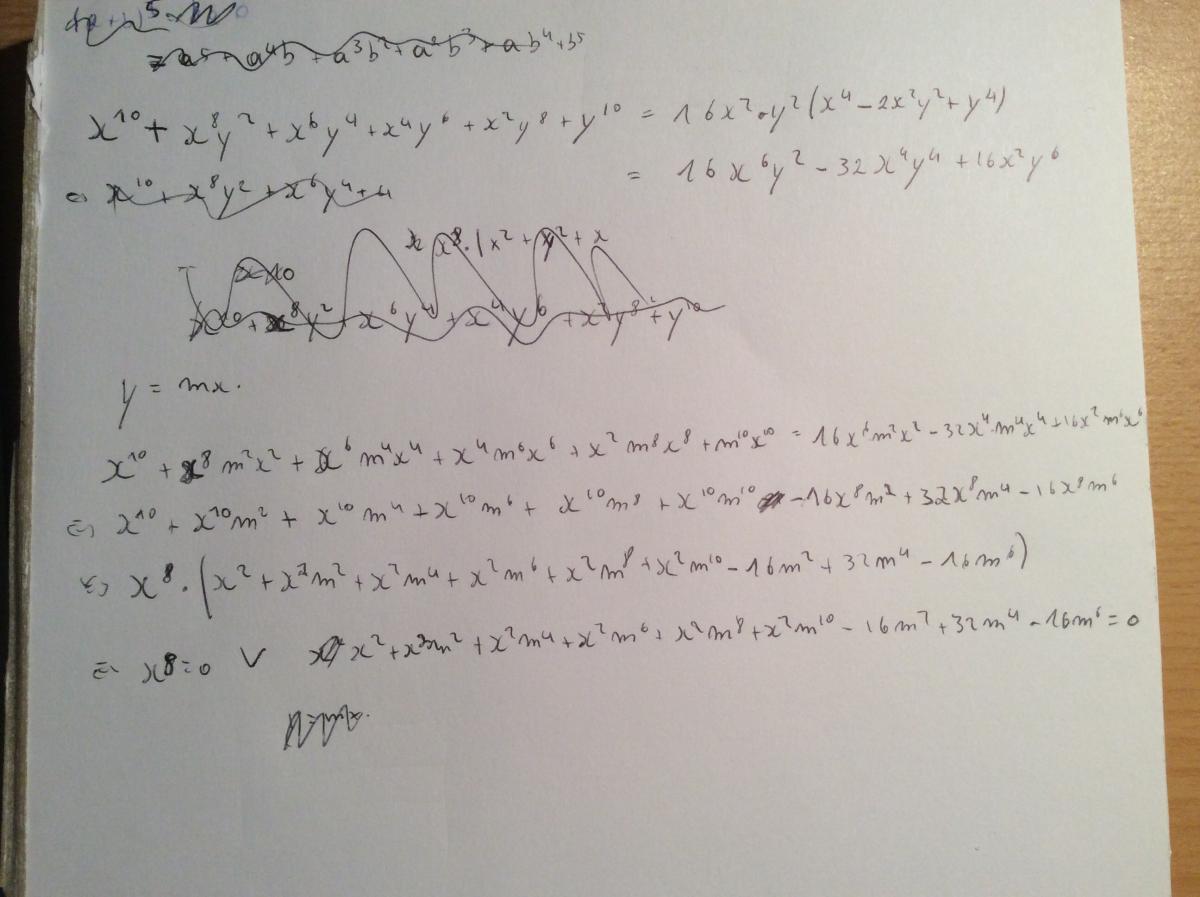 = a⁵ + a⁴b + a³b² + a²b³ + ab⁴ + b⁵
x¹⁰ + x⁸y² + x⁶y⁴ + x⁴y⁶ + x²y⁸ + y¹⁰ = 16x²·y²(x⁴ - 2x²y² + y⁴)
= 16x⁶y² - 32x⁴y⁴ + 16x²y⁶
⇔ x¹⁰ + x⁸y² + x⁶y⁴ + 4
x⁸·(x² + y² + x
x10
+ x⁸y² + x⁶y⁴ + x⁴y⁶ + x²y⁸ + y¹⁰
y = mx.
x¹⁰ + x⁸m²x² + x⁶m⁴x⁴ + x⁴m⁶x⁶ + x²m⁸x⁸ + m¹⁰x¹⁰ = 16x⁶m²x² - 32x⁴m⁴x⁴ + 16x²m⁶x⁶
⇔ x¹⁰ + x¹⁰m² + x¹⁰m⁴ + x¹⁰m⁶ + x¹⁰m⁸ + x¹⁰m¹⁰ - 16x⁸m² + 32x⁸m⁴ - 16x⁸m⁶
⇔ x⁸·(x² + x²m² + x²m⁴ + x²m⁶ + x²m⁸ + x²m¹⁰ - 16m² + 32m⁴ - 16m⁶)
⇔ x⁸=0 ∨ x² + x²m² + x²m⁴ + x²m⁶ + x²m⁸ + x²m¹⁰ - 16m² + 32m⁴ - 16m⁶ = 0